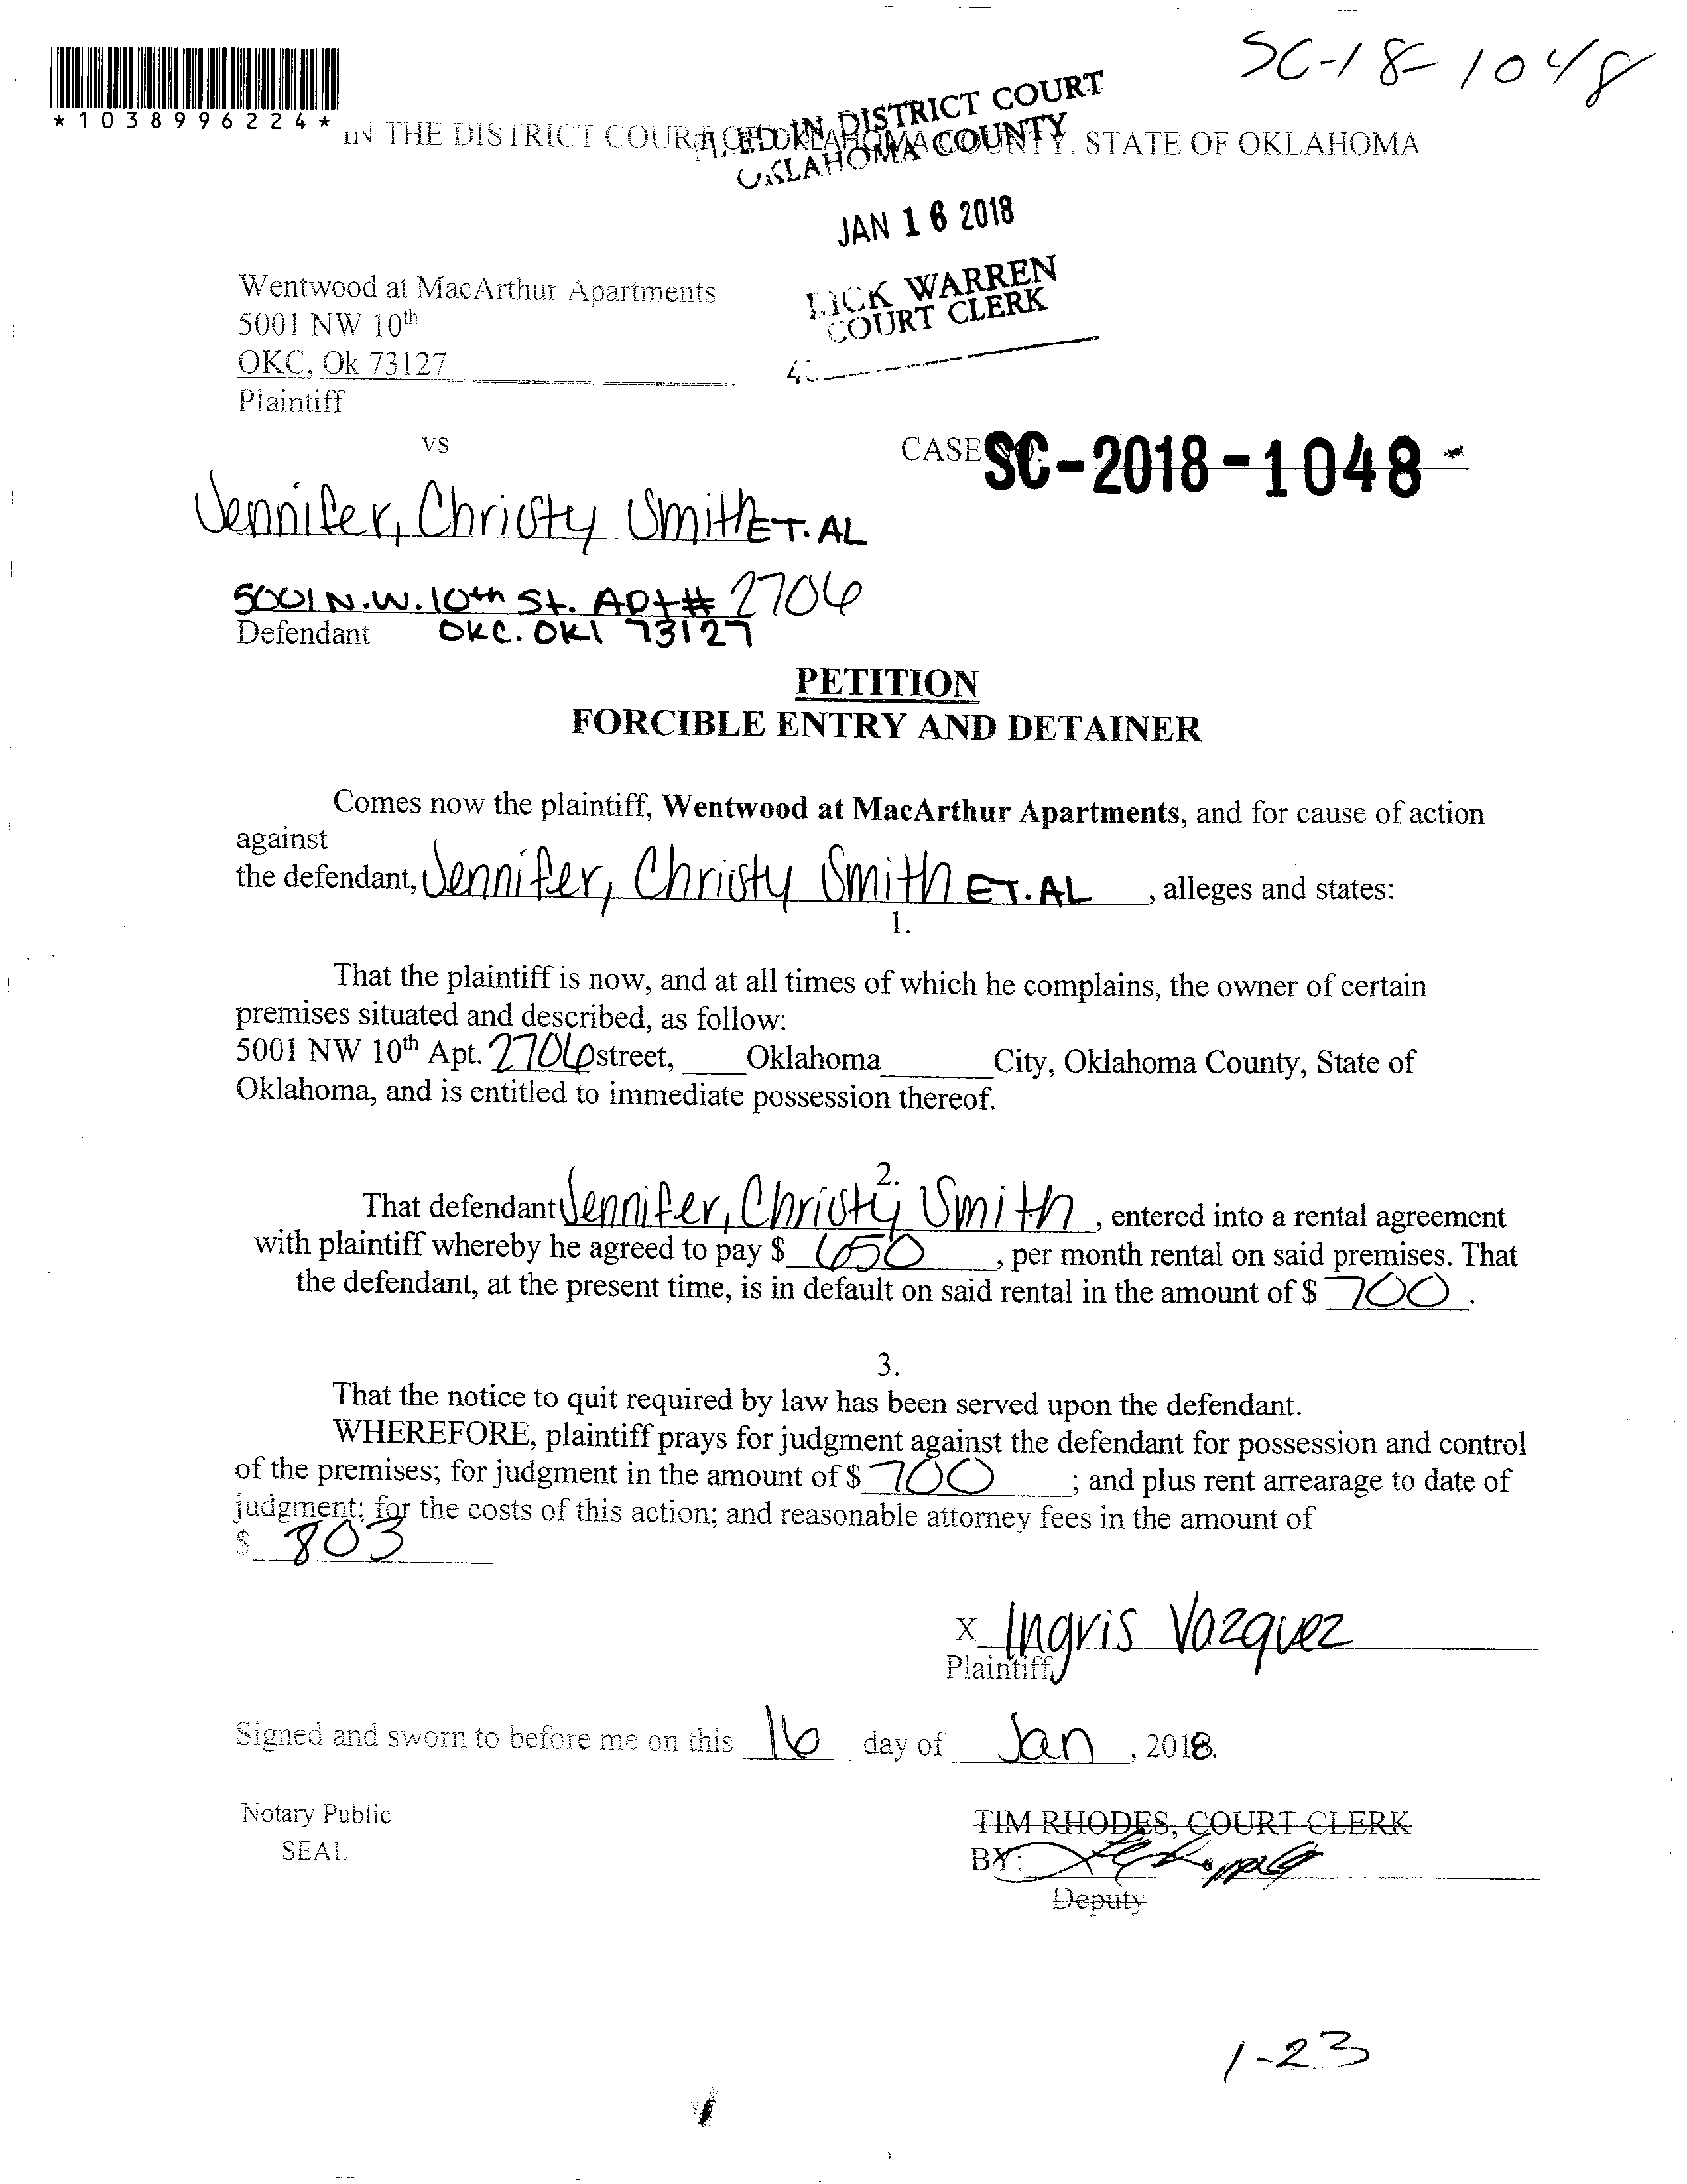 SC-18-1048
*1038996224*
IN THE DISTRICT COURT OF OKLAHOMA COUNTY, STATE OF OKLAHOMA
FILED IN DISTRICT COURT
OKLAHOMA COUNTY
JAN 16 2018
RICK WARREN
COURT CLERK
Wentwood at MacArthur Apartments
5001 NW 10th
OKC, Ok 73127
Plaintiff
vs
CASE NO. SC-2018-1048-
Jennifer, Christy Smith ET.AL
5001 N.W. 10th St. Apt# 2706
Defendant OKC. OKl 73127
PETITION
FORCIBLE ENTRY AND DETAINER
Comes now the plaintiff, Wentwood at MacArthur Apartments, and for cause of action
against
the defendant, Jennifer, Christy Smith ET.AL, alleges and states:
1.
That the plaintiff is now, and at all times of which he complains, the owner of certain
premises situated and described, as follow:
5001 NW 10th Apt. 2706 street, ____Oklahoma_______City, Oklahoma County, State of
Oklahoma, and is entitled to immediate possession thereof.
2.
That defendant Jennifer, Christy Smith, entered into a rental agreement
with plaintiff whereby he agreed to pay $ 650, per month rental on said premises. That
the defendant, at the present time, is in default on said rental in the amount of $ 700.
3.
That the notice to quit required by law has been served upon the defendant.
WHEREFORE, plaintiff prays for judgment against the defendant for possession and control
of the premises; for judgment in the amount of $ 700; and plus rent arrearage to date of
judgment; for the costs of this action; and reasonable attorney fees in the amount of
$ 803
X Ingris Vazquez
Plaintiff
Signed and sworn to before me on this 16 day of Jan, 2018.
Notary Public
SEAL
TIM RHODES, COURT CLERK
BY:
Deputy
1-23